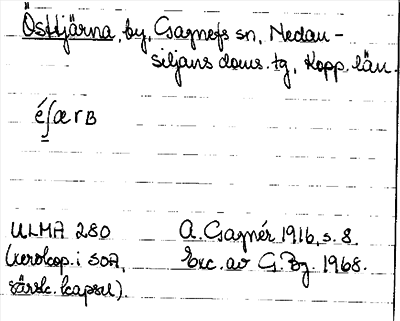 Östtjärna, by, Gagnefs sn, Nedan-
siljans doms. tg, Kopp. län.
éʃærB
ULMA 280
(xerokop. i SOA,
särsk. kapsel).
A. Gagnér 1916, s. 8.
Exc. av G. Bg. 1968.